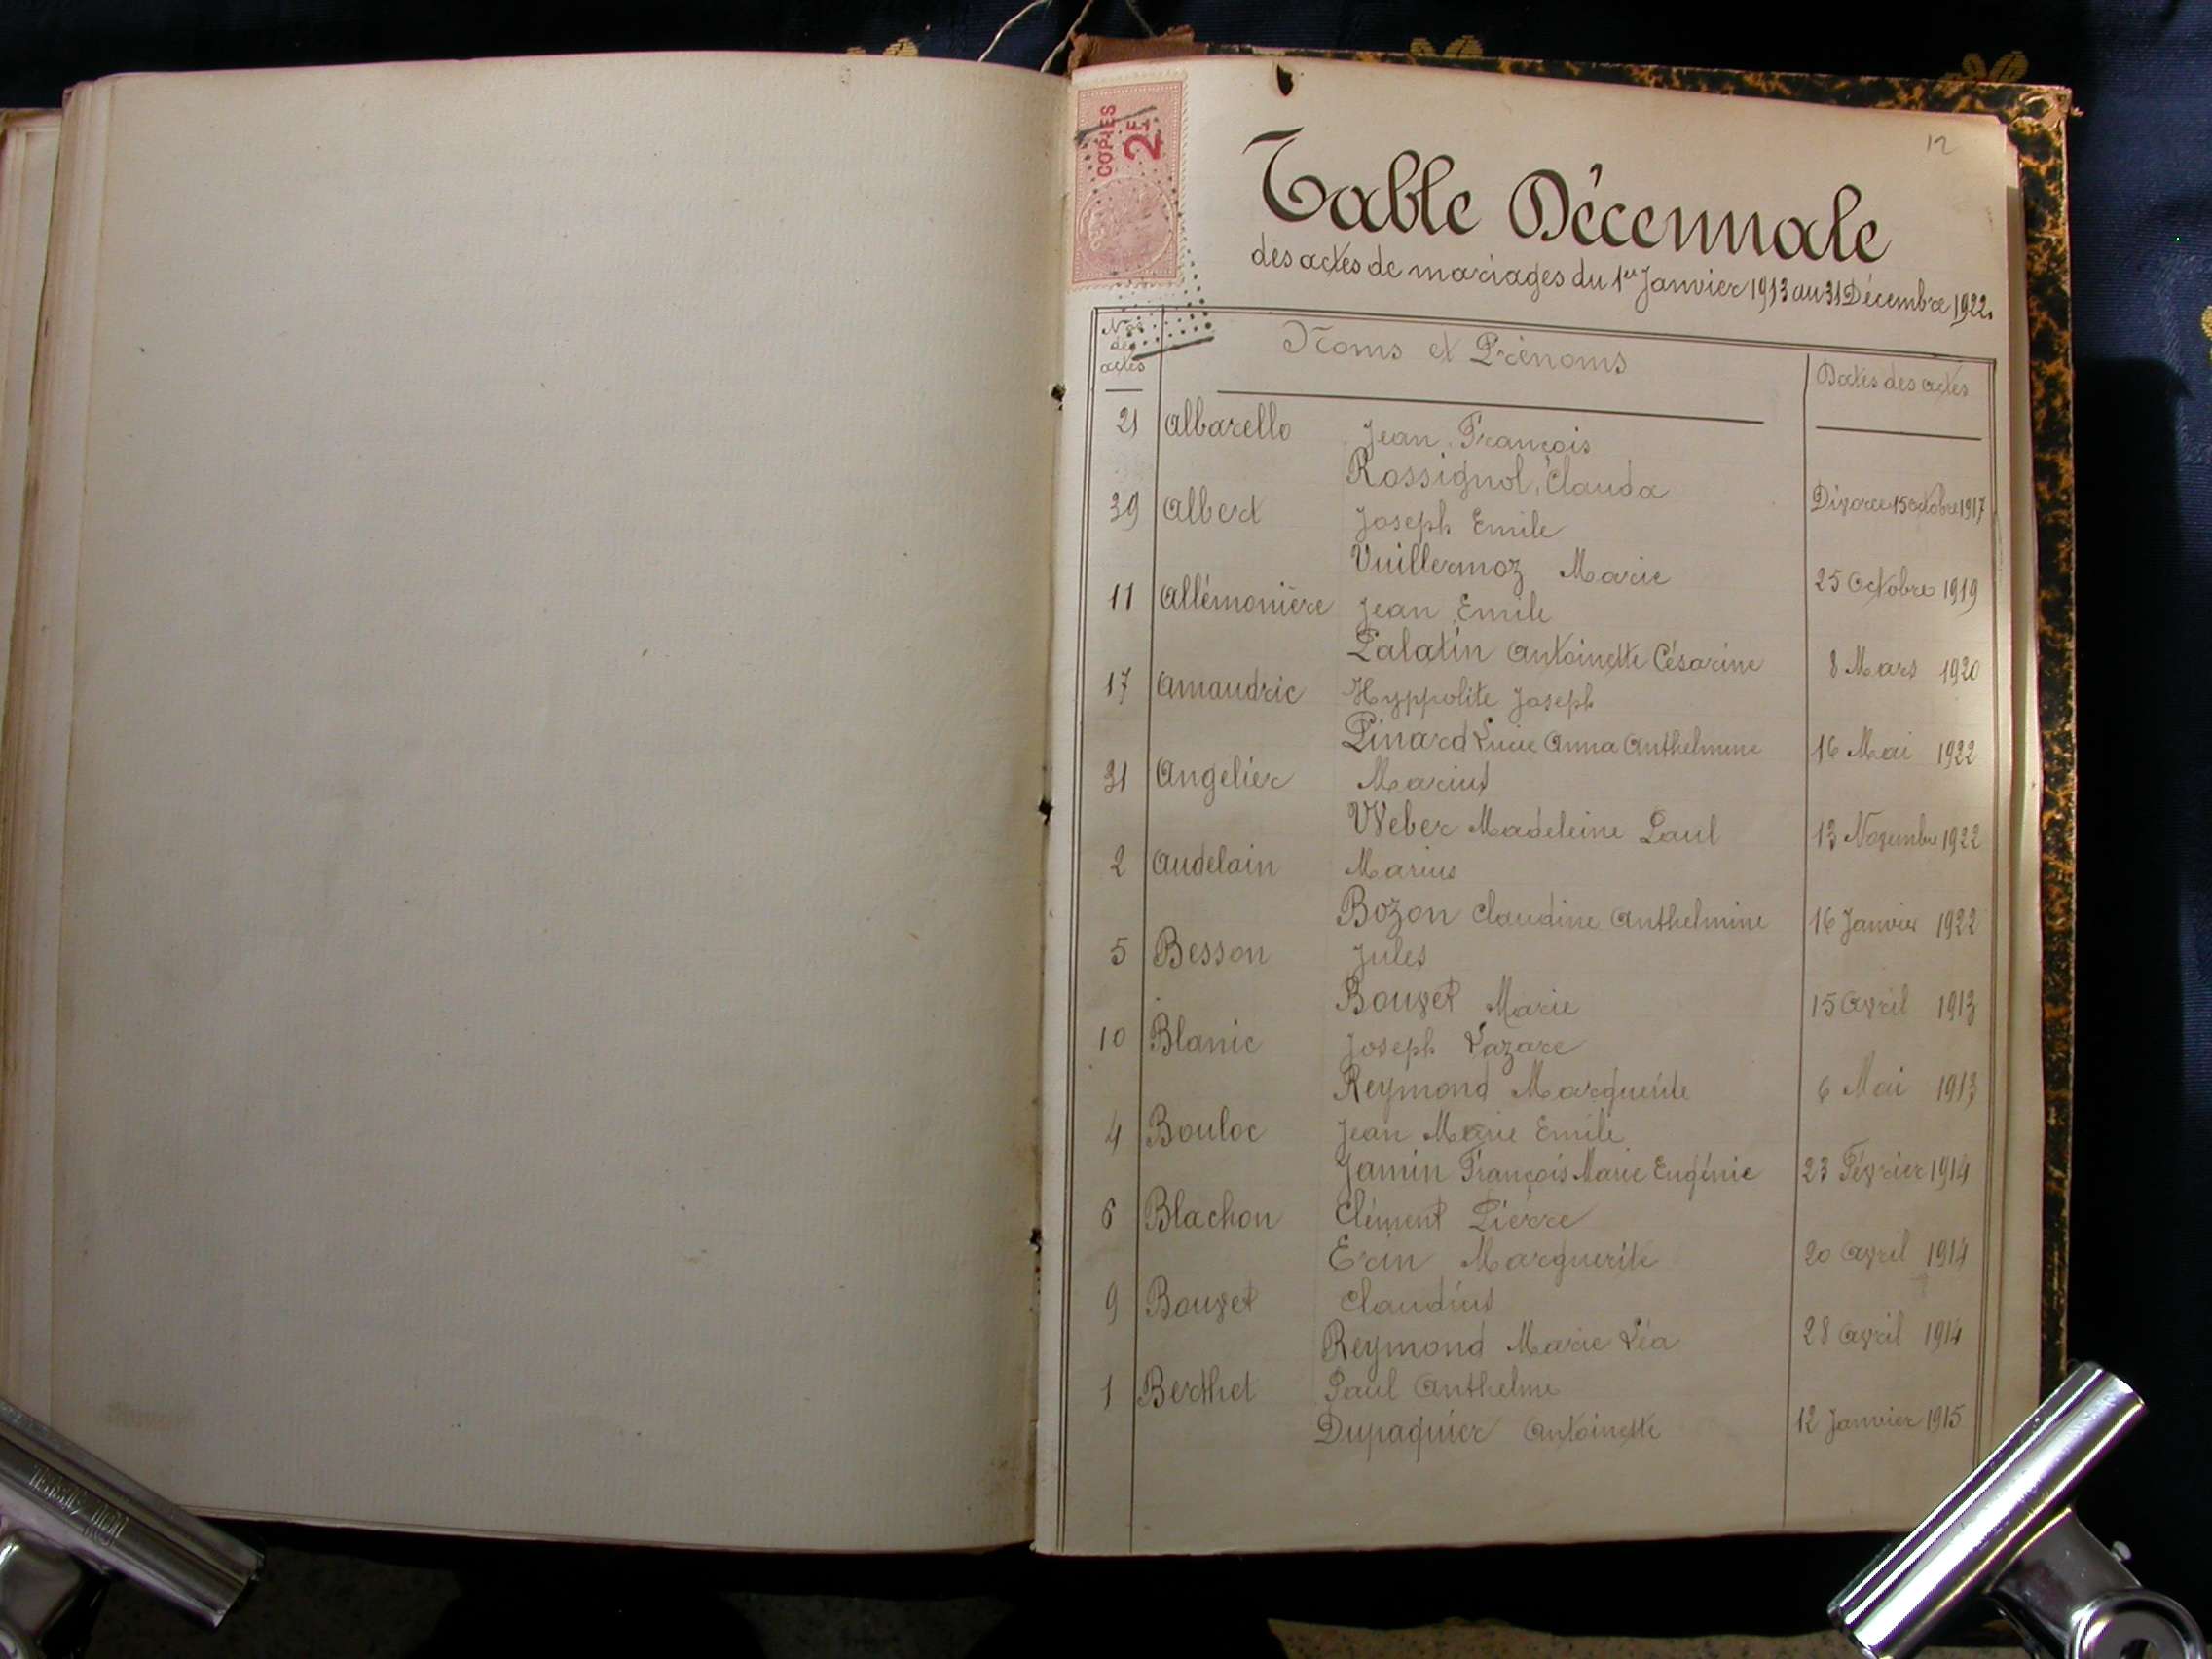 COPIES
2F
12
Table Décennale
des actes de mariages du 1er Janvier 1913 au 31 Décembre 1922.
Nos des actes Noms et Prénoms Dates des actes
21 Albarello Jean François
Rossignol, Clauda Divorce 15 octobre 1917
39 Albert Joseph Emile
Vuillermoz Marie 25 Octobre 1919
11 Allémonière Jean Emile
Palatin Antoinette Césarine 8 Mars 1920
17 Amaudric Hyppolite Joseph
Pinard Lucie Anna Anthelmine 16 Mai 1922
31 Angelier Marius
Weber Madeleine Paul 13 Novembre 1922
2 Audelain Marius
Bozon Claudine Anthelmine 16 Janvier 1922
5 Besson Jules
Bouvet Marie 15 Avril 1913
10 Blanic Joseph Lazare
Reymond Marguerite 6 Mai 1913
4 Bouloc Jean Marie Emile
Jamin François Marie Eugénie 23 Février 1914
6 Blachon Clément Pierre
Erin Marguerite 20 Avril 1914
9 Bouvet Claudius
Reymond Marie Léa 28 Avril 1914
1 Berthet Paul Anthelme
Dupaquier Antoinette 12 Janvier 1915